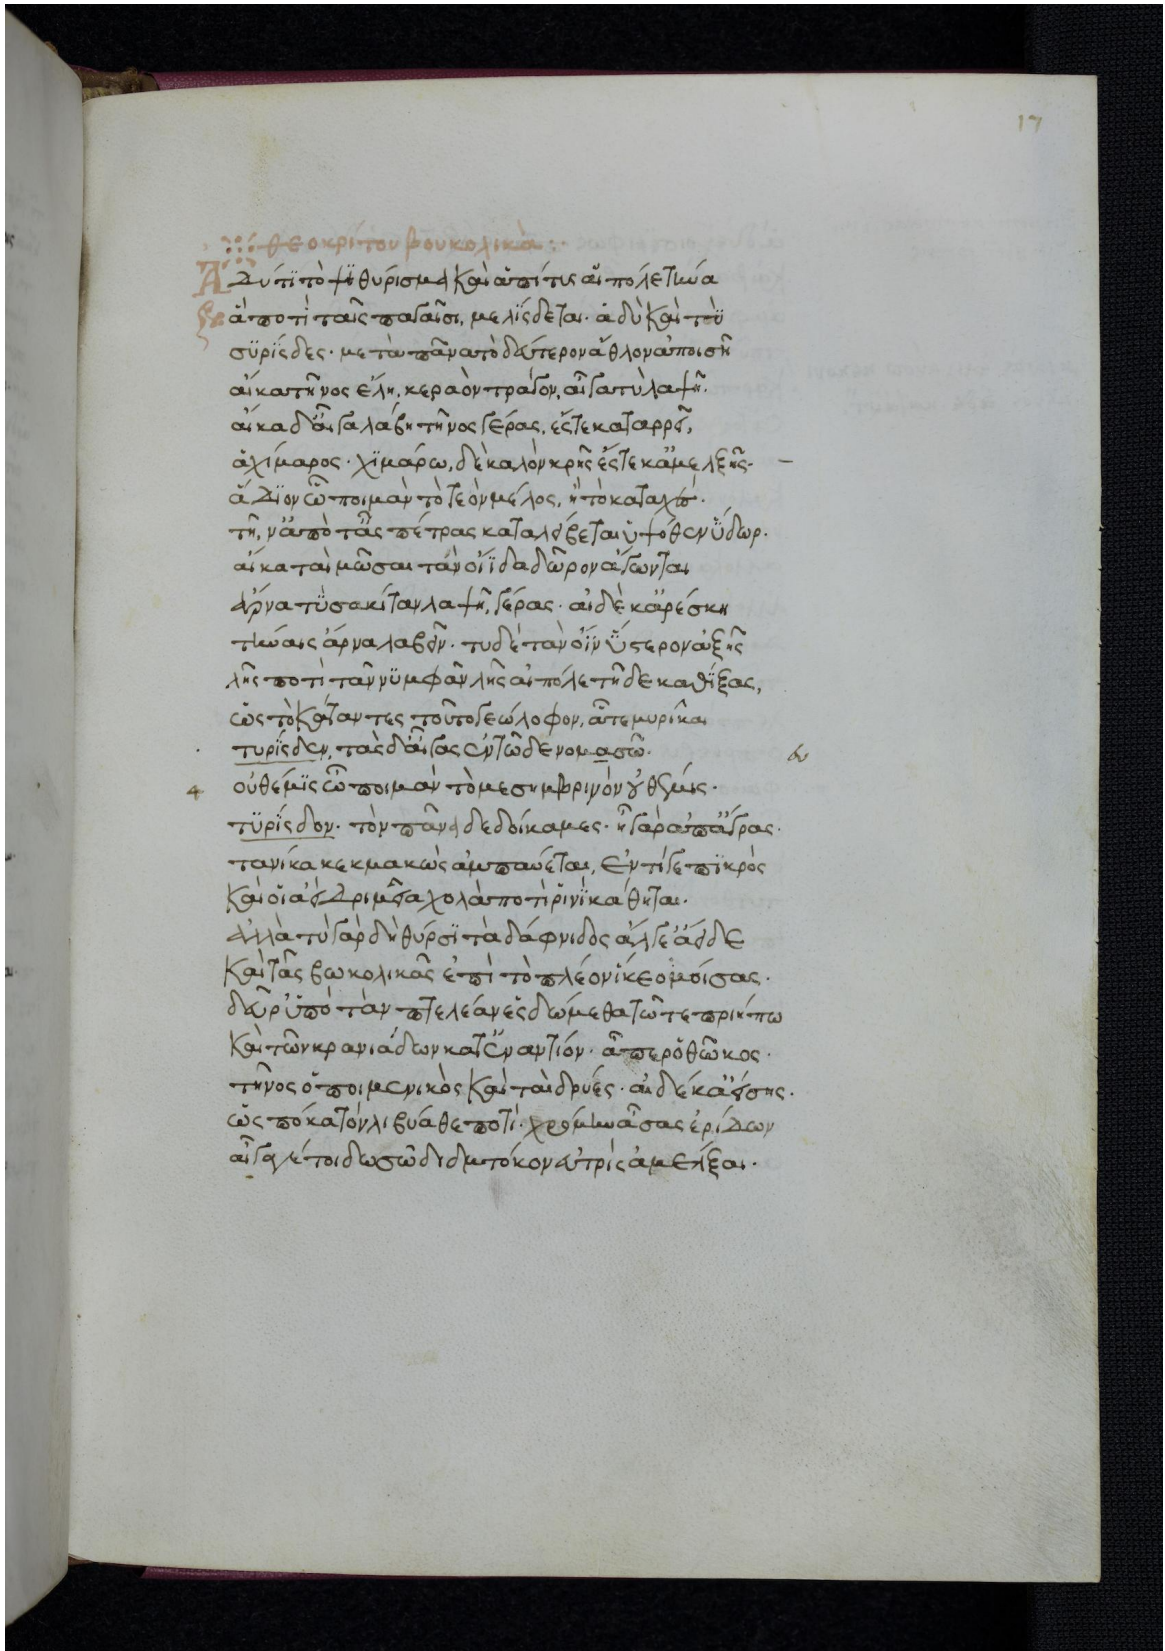 17
θεοκρίτου βουκολικὰ
Ἁδύ τι τὸ ψιθύρισμα καὶ ἁ πίτυς αἰπόλε τήνα
ἁ ποτὶ ταῖς παγαῖσι, μελίσδεται· ἁδὺ καὶ τὺ
συρίσδες· μετὰ πᾶνα τὸ δεύτερον ἆθλον ἀποισῇ
αἴκα τῆνος ἕλῃ, κεραὸν τράγον, αἶγα τὺ λαψῇ·
αἴκα δ' αἶγα λάβῃ τῆνος γέρας, ἔς τε καταρρεῖ,
ἁ χίμαρος· χιμάρω, δὲ καλὸν κρῆς ἔς τε κ' ἀμέλξῃς·
ἅδιον ὦ ποιμὰν τὸ τεὸν μέλος, ἢ τὸ καταχὲς
τῆν, ἀπὸ τᾶς πέτρας καταλείβεται ὑψόθεν ὕδωρ·
αἴκα ταὶ μῶσαι τὰν οἴϊδα δῶρον ἄγωνται
ἄρνα τὺ σακίταν λαψῇ, γέρας· αἰ δέ κ' ἀρέσκῃ
τήναις ἄρνα λαβεῖν· τὺ δὲ τὰν ὄϊν ὕστερον ἀξῇς
λῇς ποτὶ τᾶν νυμφᾶν λῇς αἰπόλε τῇδε καθίξας,
ὡς τὸ κάταντες τοῦτο γεώλοφον, ᾇτε μυρῖκαι
τυρίσδεν, τὰς δ' αἶγας ἐν τῷδε νομασῶ·
οὐ θέμις ὦ ποιμὰν τὸ μεσημβρινὸν οὐ θέμις·
τυρίσδον· τὸν πᾶνα δεδοίκαμες· ἦ γὰρ ἀπ' ἄγρας·
τανίκα κεκμακὼς ἀμπαύεται, ἐντί γε πικρὸς
καὶ οἱ ἀεὶ δριμεῖα χολὰ ποτὶ ῥινὶ κάθηται·
ἀλλὰ τὺ γὰρ δὴ θύρσι τὰ δάφνιδος ἄλγε' ἄειδε
καὶ τᾶς βωκολικᾶς ἐπὶ τὸ πλέον ἵκεο μοίσας·
δεῦρ' ὑπὸ τὰν πτελέαν ἑσδώμεθα τῶ τε πριήπω
καὶ τῶν κρανιάδων κατεναντίον· ᾇπερ ὁ θῶκος·
τῆνος ὁ ποιμενικὸς καὶ ταὶ δρύες· αἰ δέ κ' ἀείσῃς·
ὡς πόκα τὸν λιβύαθε ποτὶ χρόμιν ᾆσας ἐρίδων
αἶγά τέ τοι δωσῶ διδυμτόκον ἐς τρὶς ἀμέλξαι·